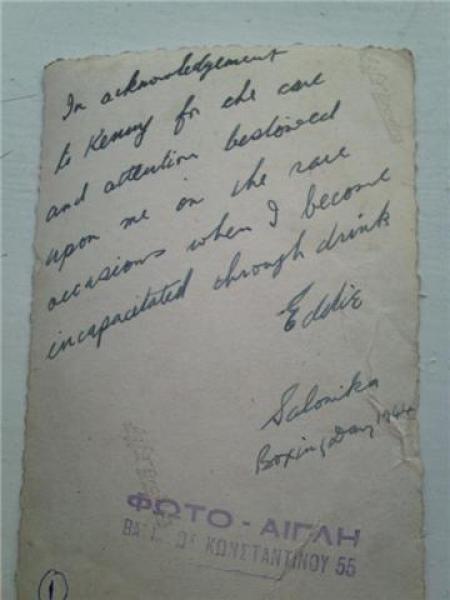 In acknowledgement
to Kenny for the care
and attention bestowed
upon me on the rare
occasions when I become
incapacitated through drink
Eddie
Salonika
Boxing Day 1944
ΦΩΤΟ - ΑΙΓΛΗ
ΚΩΝΣΤΑΝΤΙΝΟΥ 55
1